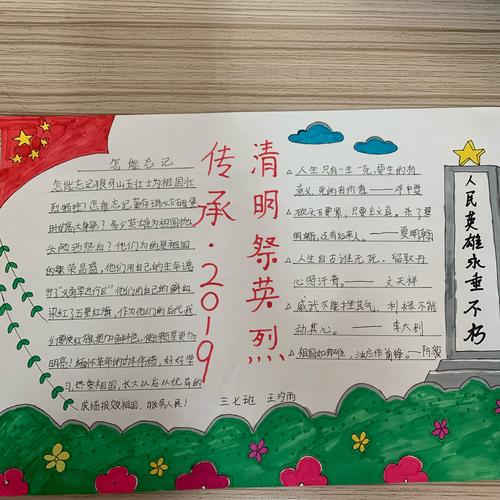 怎能忘记
怎能忘记狼牙山五壮士为祖国壮
烈牺牲？怎能忘记董存瑞炸碉堡
时的高大身影？多少英雄为祖国抛
头颅洒热血？他们为的是祖国
的繁荣昌盛，他们用自己的生命谱
写了"义勇军进行曲"他们用自己的鲜血
染红了五星红旗，作为他们的后代我
们要使红旗更加鲜艳，使
明亮！缅怀革命的 好好学
习，热爱祖国，长大以后以优良的
成绩报效祖国，服务人民！
传承·2019
清明祭英烈
人生只有一生一死，要生的有
意义，死的有价值——邓中夏
砍头不要紧。只要主义真，杀了夏
明翰，还有后来人。——夏明翰
人生自古谁无死，留取丹
心照汗青。——文天祥
威武不能挫其气，利禄不能
动其心。——李大钊
祖国如有难，汝应作前锋。——陈毅
三七班 王 雨
人民英雄永垂不朽